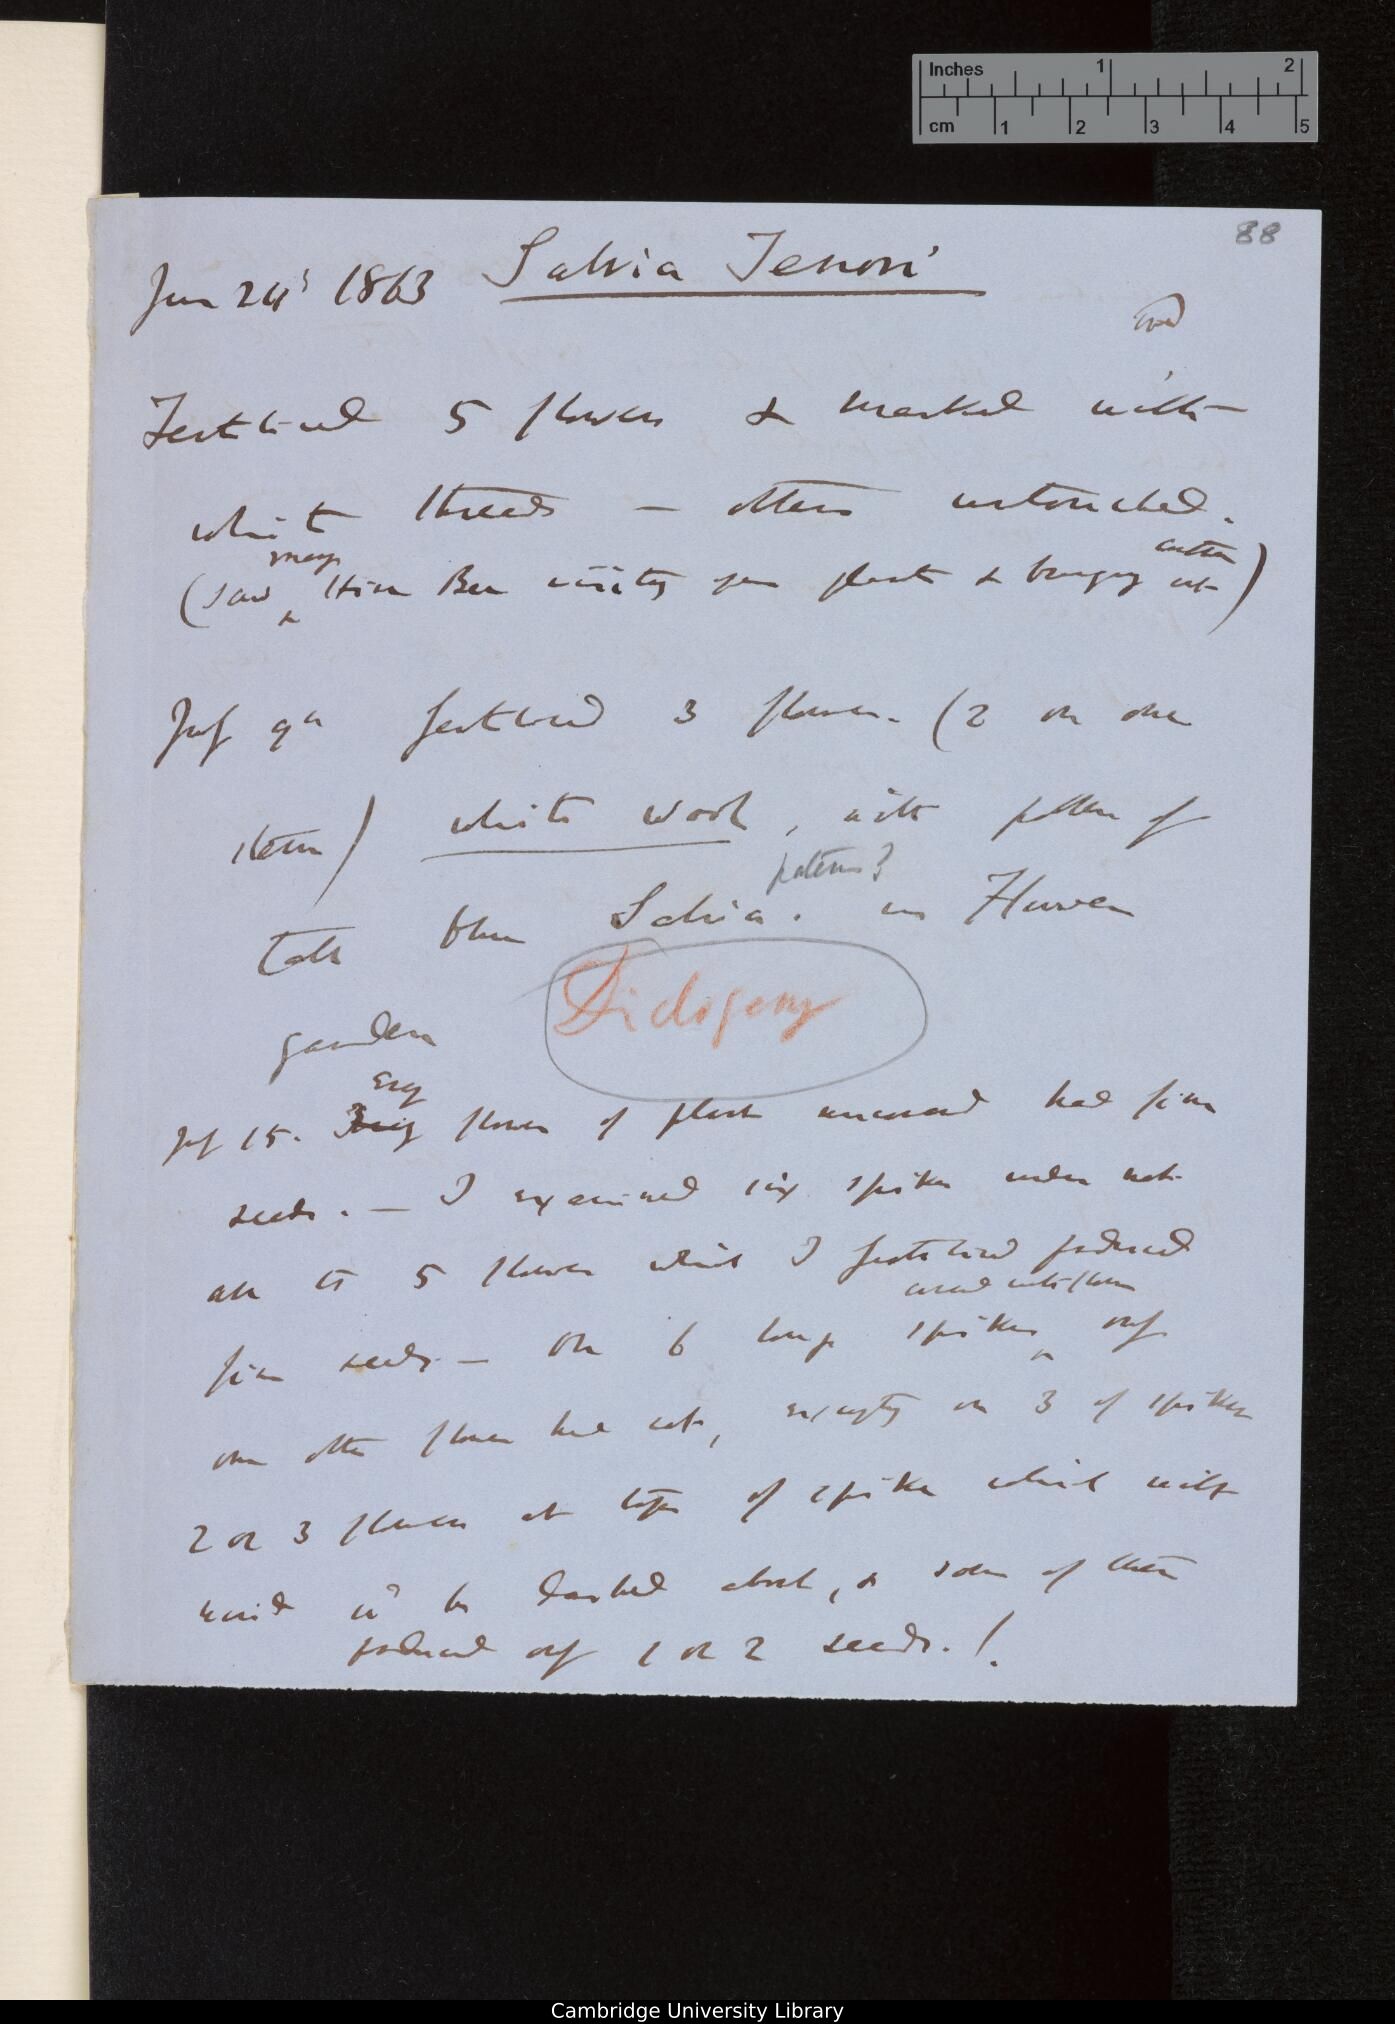 Inches 1 2
cm 1 2 3 4 5
88
June 24' 1863 Salvia Tenori
Fertilised 5 flowers & marked with
white threads — others untouched.
many anther
(saw ^ Hive Bee visiting your plant & bringing out)
July 9th fertilised 3 flowers. (2 on one
stem) white wool, with pollen of
patens?
tall blue Salvia. in Flower
garden
Dichogamy
every
July 15. flower of plant uncovered had fine
seeds. — I examined six spikes under net
all the 5 flowers which I fertilised produced
fine seeds — On 6 long spikes ^ only
one other flower had set, excepting on 3 of spikes
2 or 3 flowers at top of spike which with
wind wd be dashed about, & some of these
produced only 1 or 2 seeds. !
Cambridge University Library